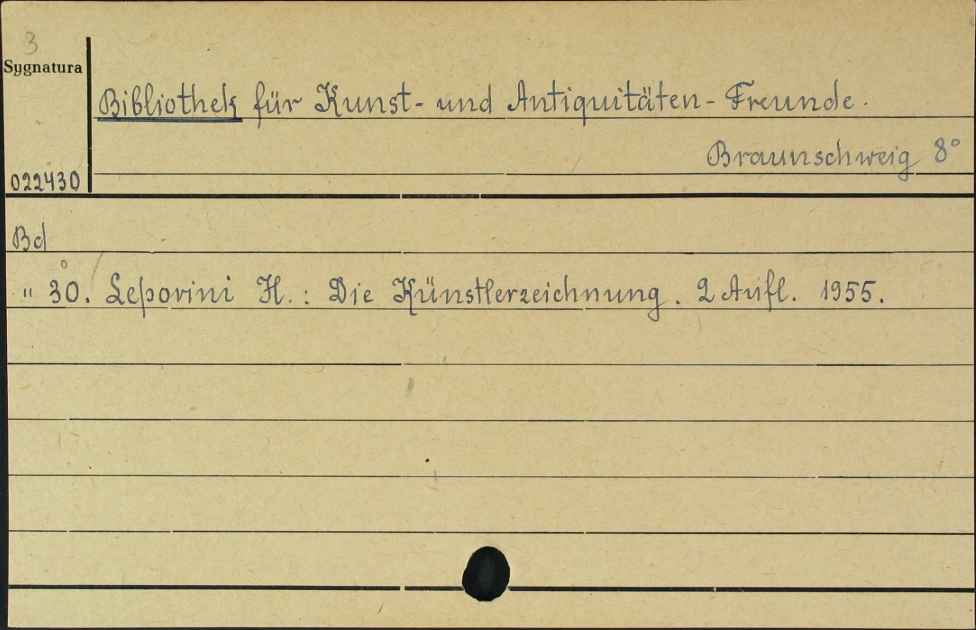 3
Sygnatura
Bibliothek für Kunst- und Antiquitäten-Freunde.
Braunschweig 8°
022430
Bd
" 30. Leporini H.: Die Künstlerzeichnung. 2 Aufl. 1955.